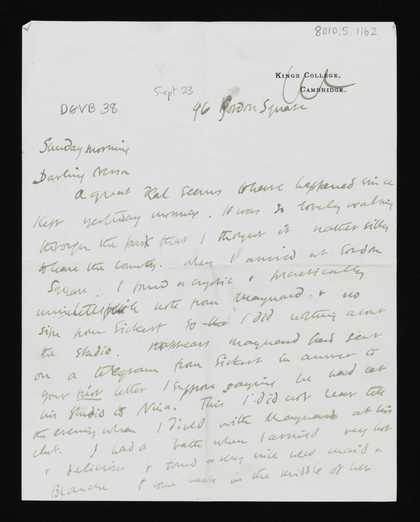 8010.5.1162
KINGS COLLEGE,
CAMBRIDGE.
Sept 23
DGVB 38
46 Gordon Square
Sunday morning
Darling Nessa
A great deal seems to have happened since
I left yesterday morning. It was so lovely walking
through the that I thought it rather silly
to leave the country. When I arrived at Gordon
Square I found a cryptic & practically
unintelligible note from Maynard & no
sign from Sickert so I did nothing about
the studio. Maynard had sent
on a telegram from Sickert in answer to
your first letter I suppose saying he had let
his studio to Nina. This I did not hear till
the evening when I dined with Maynard at his
club. I had a bath when I arrived very hot
& delicious & found a very nice maid
Blanche & came back in the middle of her